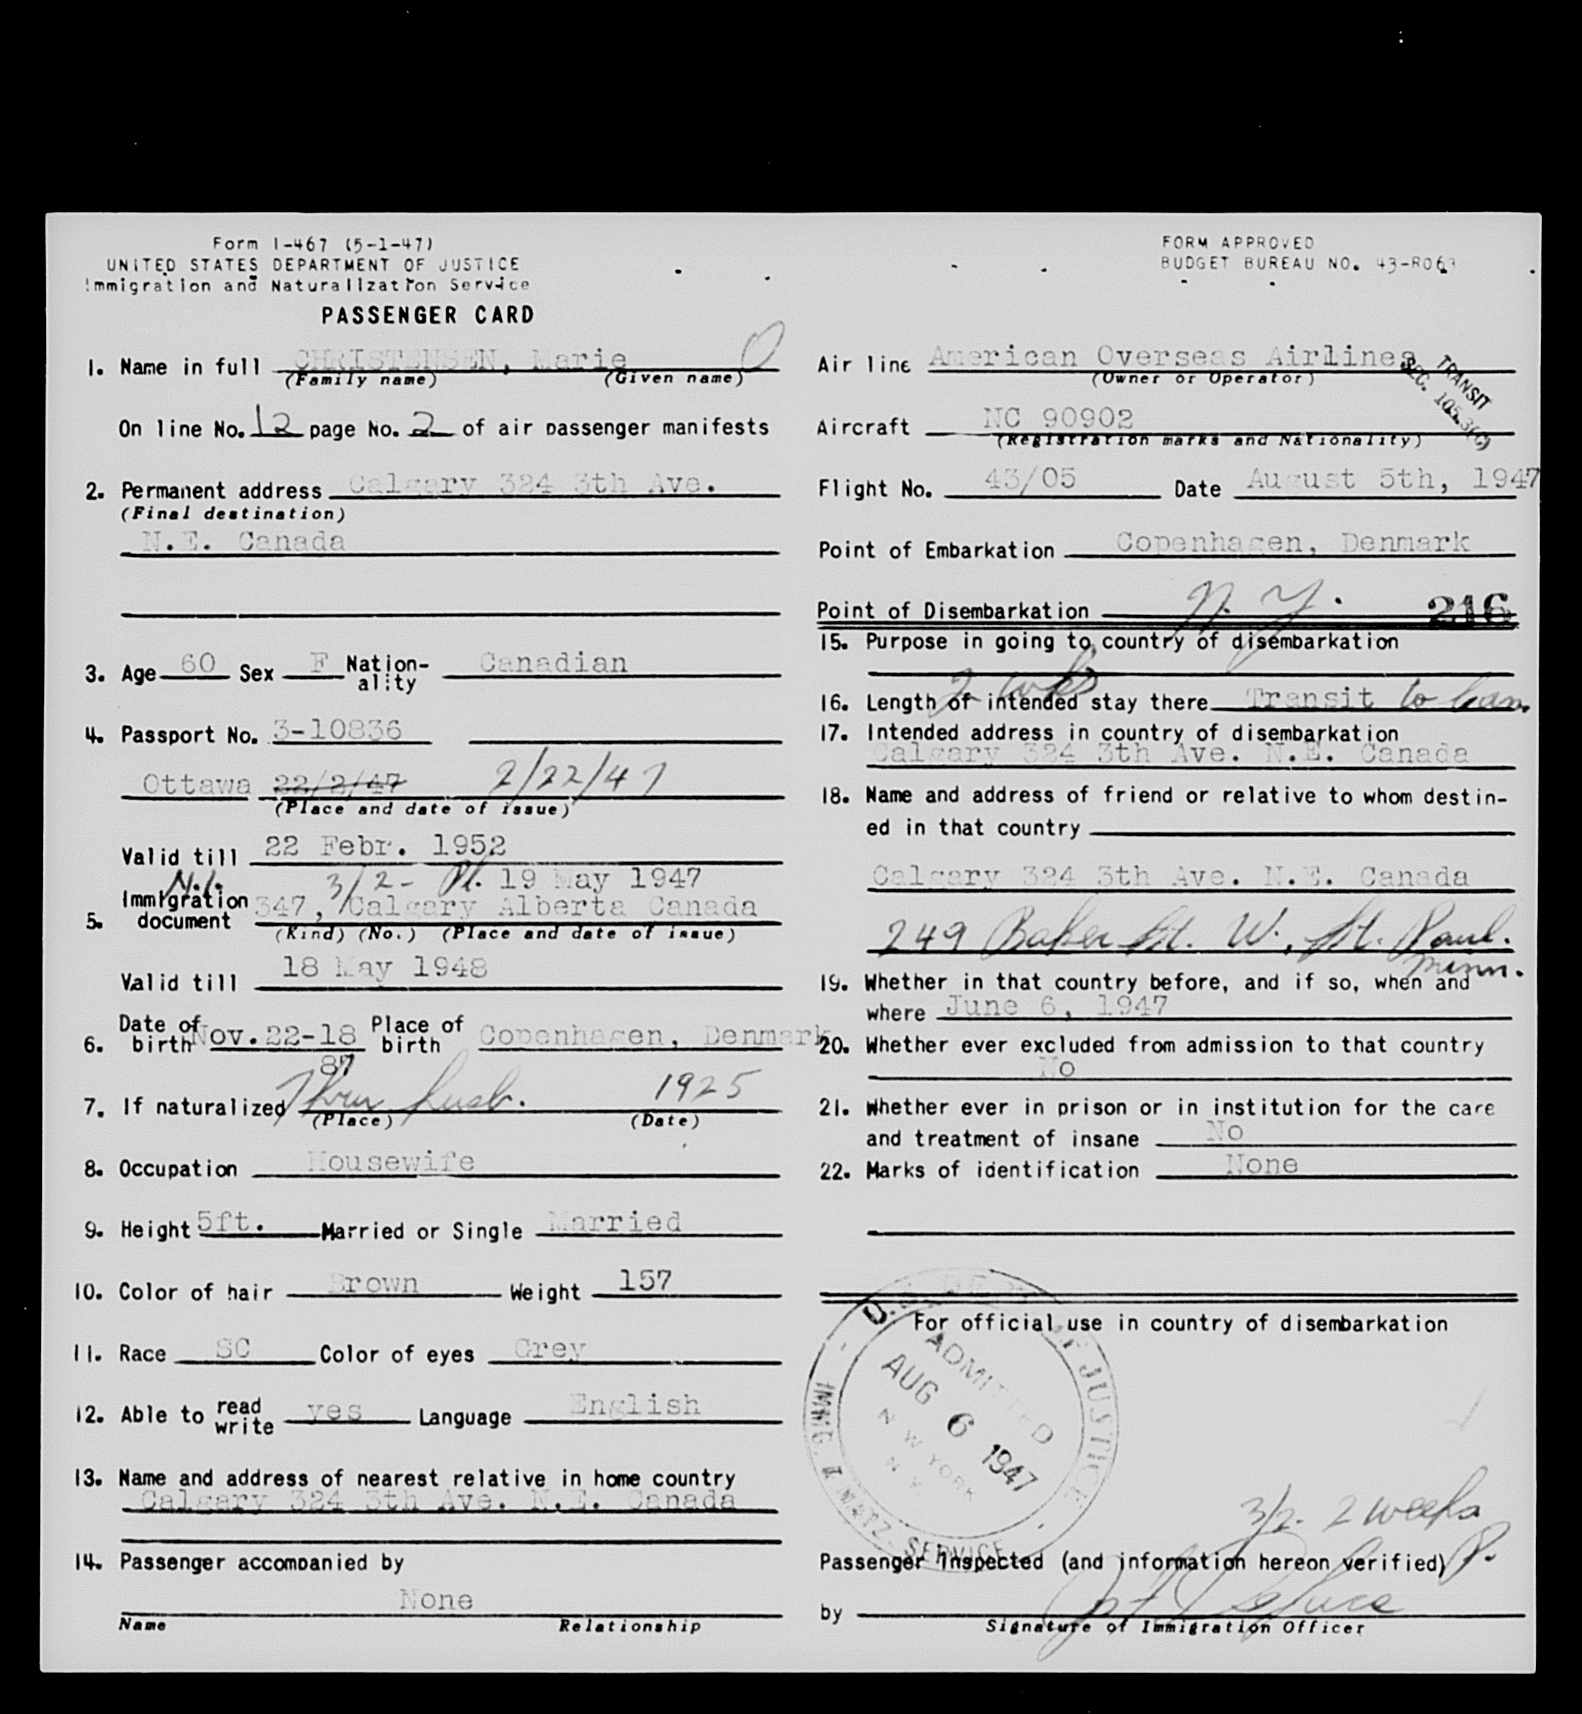 Form I-467 (5-1-47)
UNITED STATES DEPARTMENT OF JUSTICE
Immigration and Naturalization Service
PASSENGER CARD
1. Name in full CHRISTENSEN, Marie
(Family name) (Given name)
On line No. 12 page No. 2 of air passenger manifests
2. Permanent address Calgary 324 3th Ave.
(Final destination)
N.E. Canada
3. Age 60 Sex F Nation-ality Canadian
4. Passport No. 3-10836
Ottawa 22/2/47 2/22/47
(Place and date of issue)
Valid till 22 Febr. 1952
N.I. 3/2- Pl. 19 May 1947
5. Immigration document 347, Calgary Alberta Canada
(Kind) (No.) (Place and date of issue)
Valid till 18 May 1948
6. Date of birth Nov. 22-18 87 Place of birth Copenhagen, Denmark
7. If naturalized Thru husb. 1925
(Place) (Date)
8. Occupation Housewife
9. Height 5ft. Married or Single Married
10. Color of hair Brown Weight 157
11. Race SC Color of eyes Grey
12. Able to read write yes Language English
13. Name and address of nearest relative in home country
Calgary 324 3th Ave. N.E. Canada
14. Passenger accompanied by
None
Name Relationship
FORM APPROVED
BUDGET BUREAU NO. 43-R063
Air line American Overseas Airlines
(Owner or Operator)
TRANSIT
SEC. 105.3(C)
Aircraft NC 90902
(Registration marks and Nationality)
Flight No. 43/05 Date August 5th, 1947
Point of Embarkation Copenhagen, Denmark
Point of Disembarkation N. Y. 216
15. Purpose in going to country of disembarkation
2 wks
16. Length of intended stay there Transit to Can.
17. Intended address in country of disembarkation
Calgary 324 3th Ave. N.E. Canada
18. Name and address of friend or relative to whom destin-
ed in that country
Calgary 324 3th Ave. N.E. Canada
249 Baker St. W., St. Paul. Minn.
19. Whether in that country before, and if so, when and
where June 6, 1947
20. Whether ever excluded from admission to that country
No
21. Whether ever in prison or in institution for the care
and treatment of insane No
22. Marks of identification None
For official use in country of disembarkation
U.S. DEPT. OF JUSTICE
ADMITTED
AUG 6 1947
NEW YORK
N Y
IMMIG. & NATZ. SERVICE
3/2. 2 weeks
Passenger Inspected (and information hereon verified) P.
by
Signature of Immigration Officer